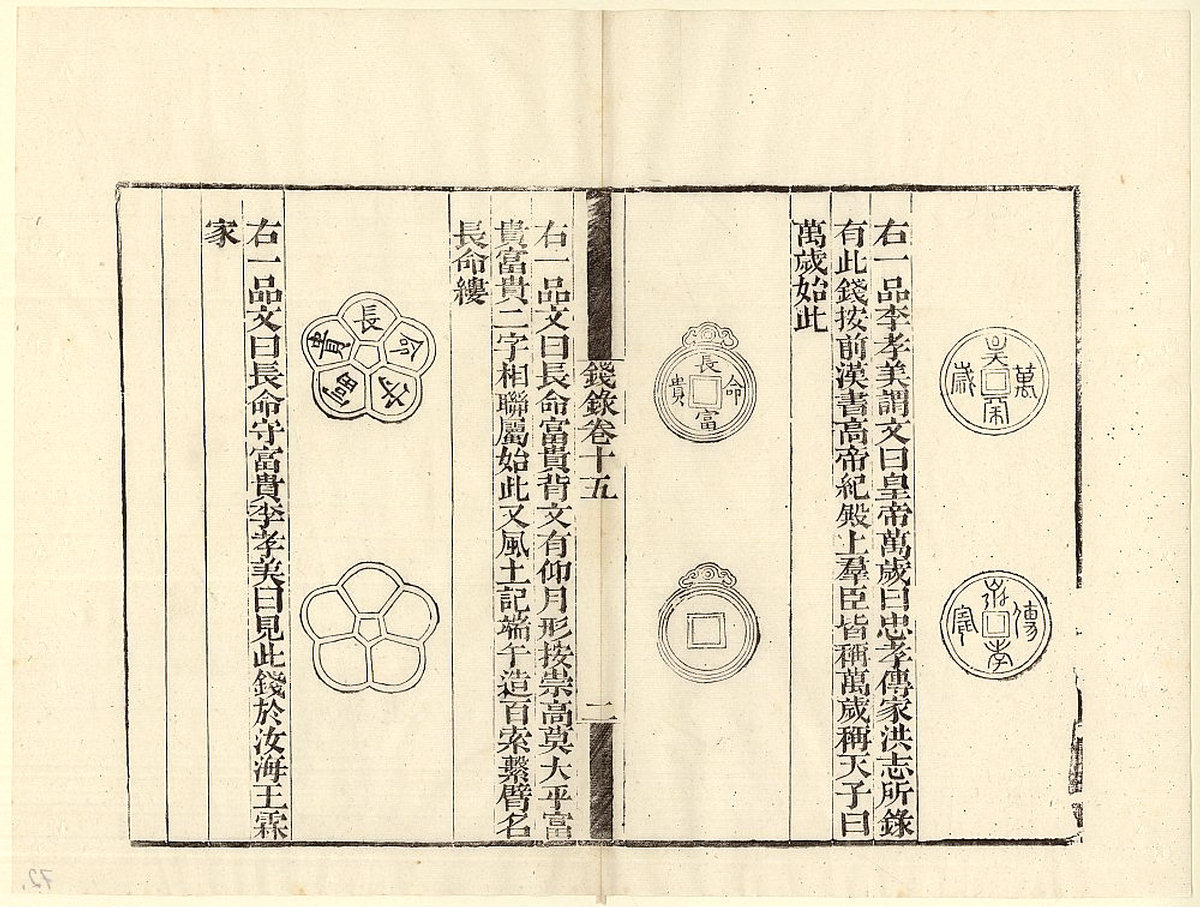 皇帝萬歲
忠孝傳家
右一品李孝美謂文曰皇帝萬歲曰忠孝傳家洪志所錄
有此錢按前漢書高帝紀殿上羣臣皆稱萬歲稱天子曰
萬歲始此
長命富貴
錢錄卷十五
二
右一品文曰長命富貴背文有仰月形按崇高莫大乎富
貴富貴二字相聯屬始此又風土記端午造百索繫臂名
長命縷
長命守富貴
右一品文曰長命守富貴李孝美曰見此錢於汝海王霖
家
72.